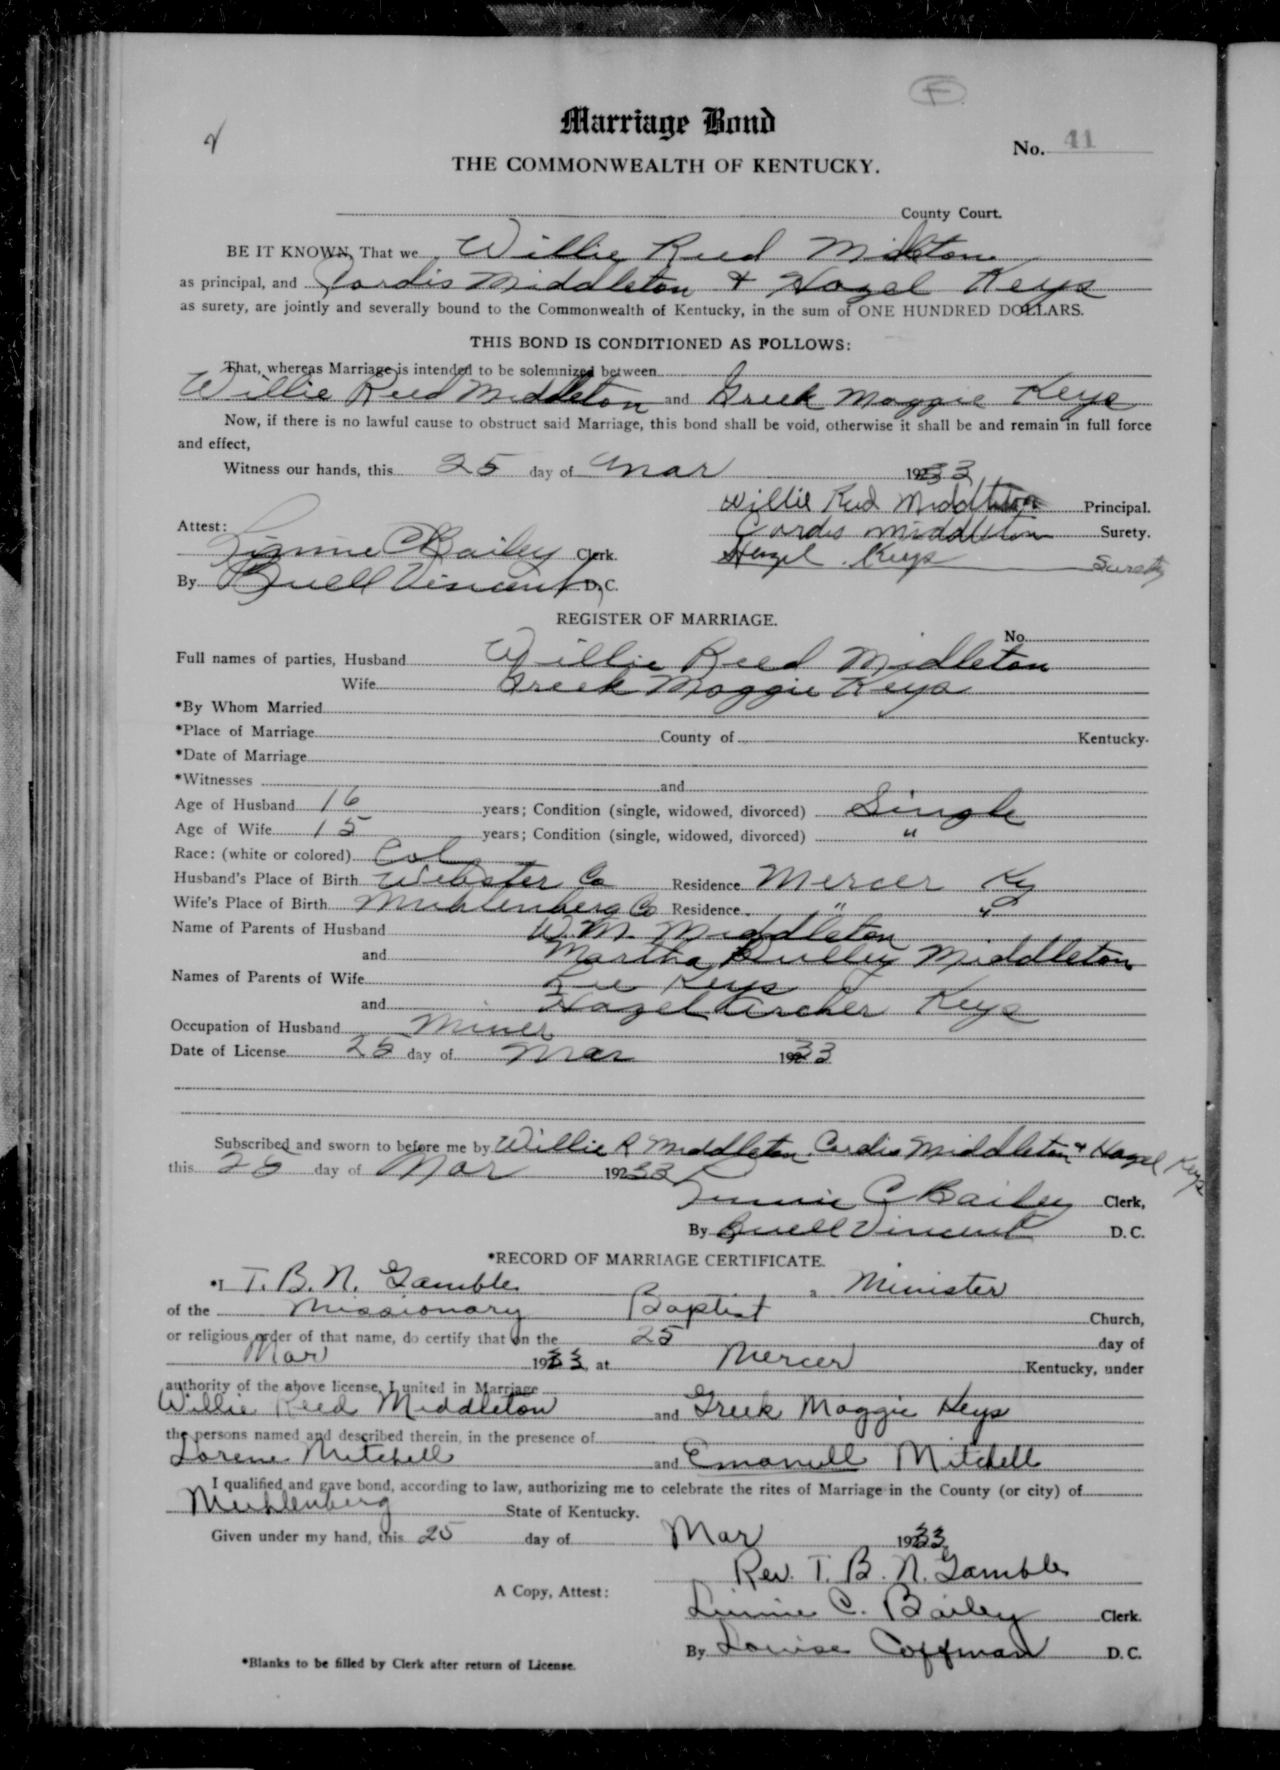 F
Marriage Bond
No. 41
THE COMMONWEALTH OF KENTUCKY.
County Court.
BE IT KNOWN, That we Willie Reed Midleton
as principal, and Cordis Middleton & Hazel Keys
as surety, are jointly and severally bound to the Commonwealth of Kentucky, in the sum of ONE HUNDRED DOLLARS.
THIS BOND IS CONDITIONED AS FOLLOWS:
That, whereas Marriage is intended to be solemnized between
Willie Reed Middleton and Greek Maggie Keys
Now, if there is no lawful cause to obstruct said Marriage, this bond shall be void, otherwise it shall be and remain in full force
and effect,
Witness our hands, this 25 day of Mar 1933
Willie Reed Middleton Principal.
Attest: Cordis Middleton Surety.
Linnie C Bailey Clerk. Hazel Keys Surety
By Buell Vincent D. C.
REGISTER OF MARRIAGE.
No.
Full names of parties, Husband Willie Reed Midleton
Wife Greek Maggie Keys
*By Whom Married
*Place of Marriage County of Kentucky.
*Date of Marriage
*Witnesses and
Age of Husband 16 years; Condition (single, widowed, divorced) Single
Age of Wife 15 years; Condition (single, widowed, divorced) "
Race: (white or colored) Col
Husband's Place of Birth Webster Co Residence Mercer Ky
Wife's Place of Birth Muhlenberg Co Residence " "
Name of Parents of Husband W. M. Middleton
and Martha Middleton
Names of Parents of Wife Lee Keys
and Hazel Archer Keys
Occupation of Husband Miner
Date of License 25 day of Mar 1933
Subscribed and sworn to before me by Willie R Middleton Cordis Middleton & Hazel Keys
this 25 day of Mar 1933
Linnie C Bailey Clerk,
By Buell Vincent D. C.
*RECORD OF MARRIAGE CERTIFICATE.
*I T. B. N. Gamble, a Minister
of the Missionary Baptist Church,
or religious order of that name, do certify that on the 25 day of
Mar 1933, at Mercer Kentucky, under
authority of the above license, I united in Marriage
Willie Reed Middleton and Greek Maggie Keys
the persons named and described therein, in the presence of
Lorene Mitchell and Emanuell Mitchell
I qualified and gave bond, according to law, authorizing me to celebrate the rites of Marriage in the County (or city) of
Muhlenberg State of Kentucky.
Given under my hand, this 25 day of Mar 1933
Rev. T. B. N. Gamble
A Copy, Attest:
Linnie C. Bailey Clerk.
By Louise Coffman D. C.
*Blanks to be filled by Clerk after return of License.